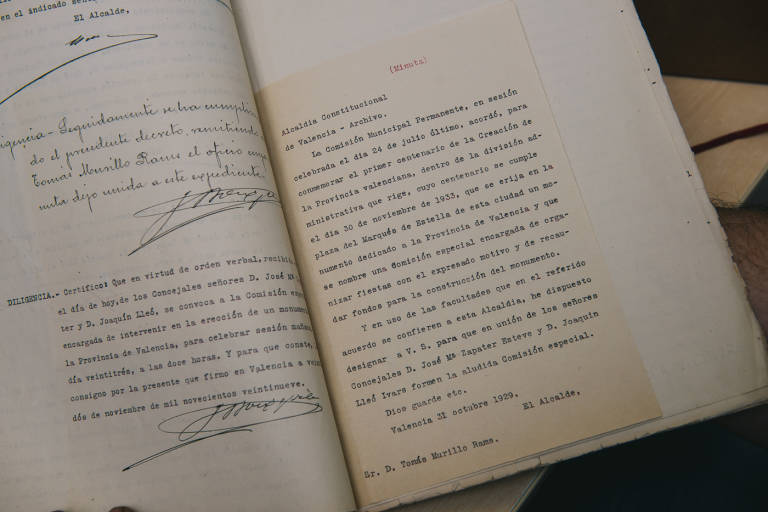 en el indicado
El Alcalde,
Seguidamente se ha cumplido
do el precedente decreto, remitiendo
Tomas Murillo Rams el oficio cuya
nuta dejo unida a este expediente.
DILIGENCIA.- Certifico: Que en virtud de orden verbal, recibida
el día de hoy, de los Concejales señores D. José Mª
ter y D. Joaquín Lleó, se convoca a la Comisión
encargada de intervenir en la erección de un monumen
la Provincia de Valencia, para celebrar sesión mañana
día veintitrés, a las doce horas. Y para que conste,
consigno por la presente que firmo en Valencia a vein
dós de noviembre de mil novecientos veintinueve.
(Minuta)
Alcaldía Constitucional
de Valencia - Archivo.
La Comisión Municipal Permanente, en sesión
celebrada el día 24 de julio último, acordó, para
conmemorar el primer centenario de la Creación de
la Provincia valenciana, dentro de la división ad-
ministrativa que rige, cuyo centenario se cumple
el día 30 de noviembre de 1933, que se erija en la
plaza del Marqués de Estella de esta ciudad un mo-
numento dedicado a la Provincia de Valencia y que
se nombre una Comisión especial encargada de orga-
nizar fiestas con el expresado motivo y de recau-
dar fondos para la construcción del monumento.
Y en uso de las facultades que en el referido
acuerdo se confieren a esta Alcaldía, he dispuesto
designar a V. S. para que en unión de los señores
Concejales D. José Mª Zapater Esteve y D. Joaquín
Lleó Ivars formen la aludida Comisión especial.
Dios guarde etc.
Valencia 31 octubre 1929.
El Alcalde,
Sr. D. Tomás Murillo Rams.